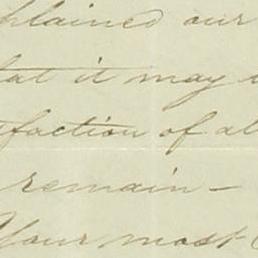 plained our
that it may
faction of al
remain —
Your most